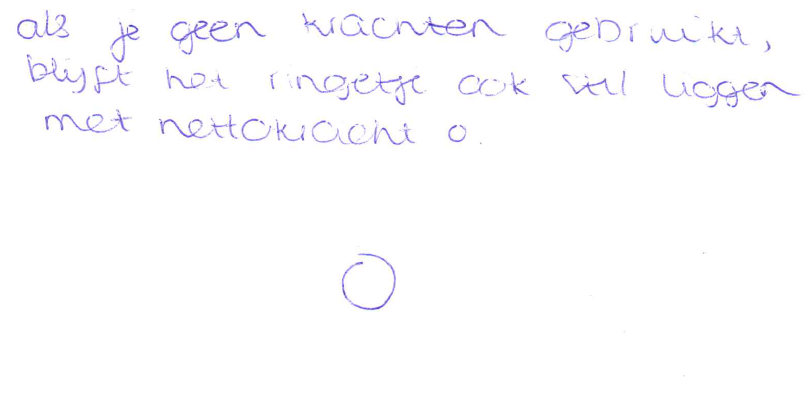 als je geen krachten gebruikt,
blijft het ringetje ook stil liggen
met nettokracht 0.